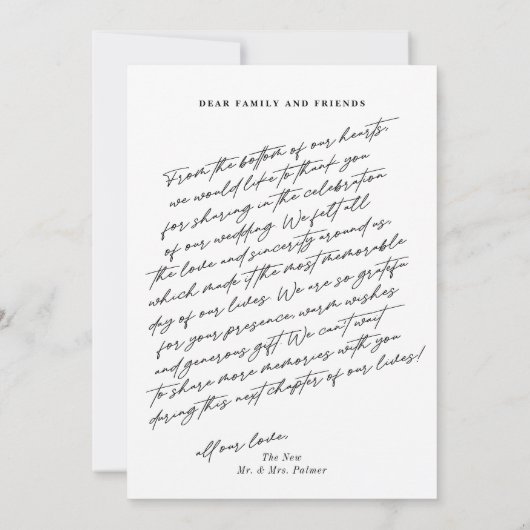 DEAR FAMILY AND FRIENDS
From the bottom of our hearts,
we would like to thank you
for sharing in the celebration
of our wedding. We felt all
the love and sincerity around us,
which made it the most memorable
day of our lives. We are so grateful
for your presence, warm wishes
and generous gift. We can't wait
to share more memories with you
during this next chapter of our lives!
all our love,
The New
Mr. & Mrs. Palmer